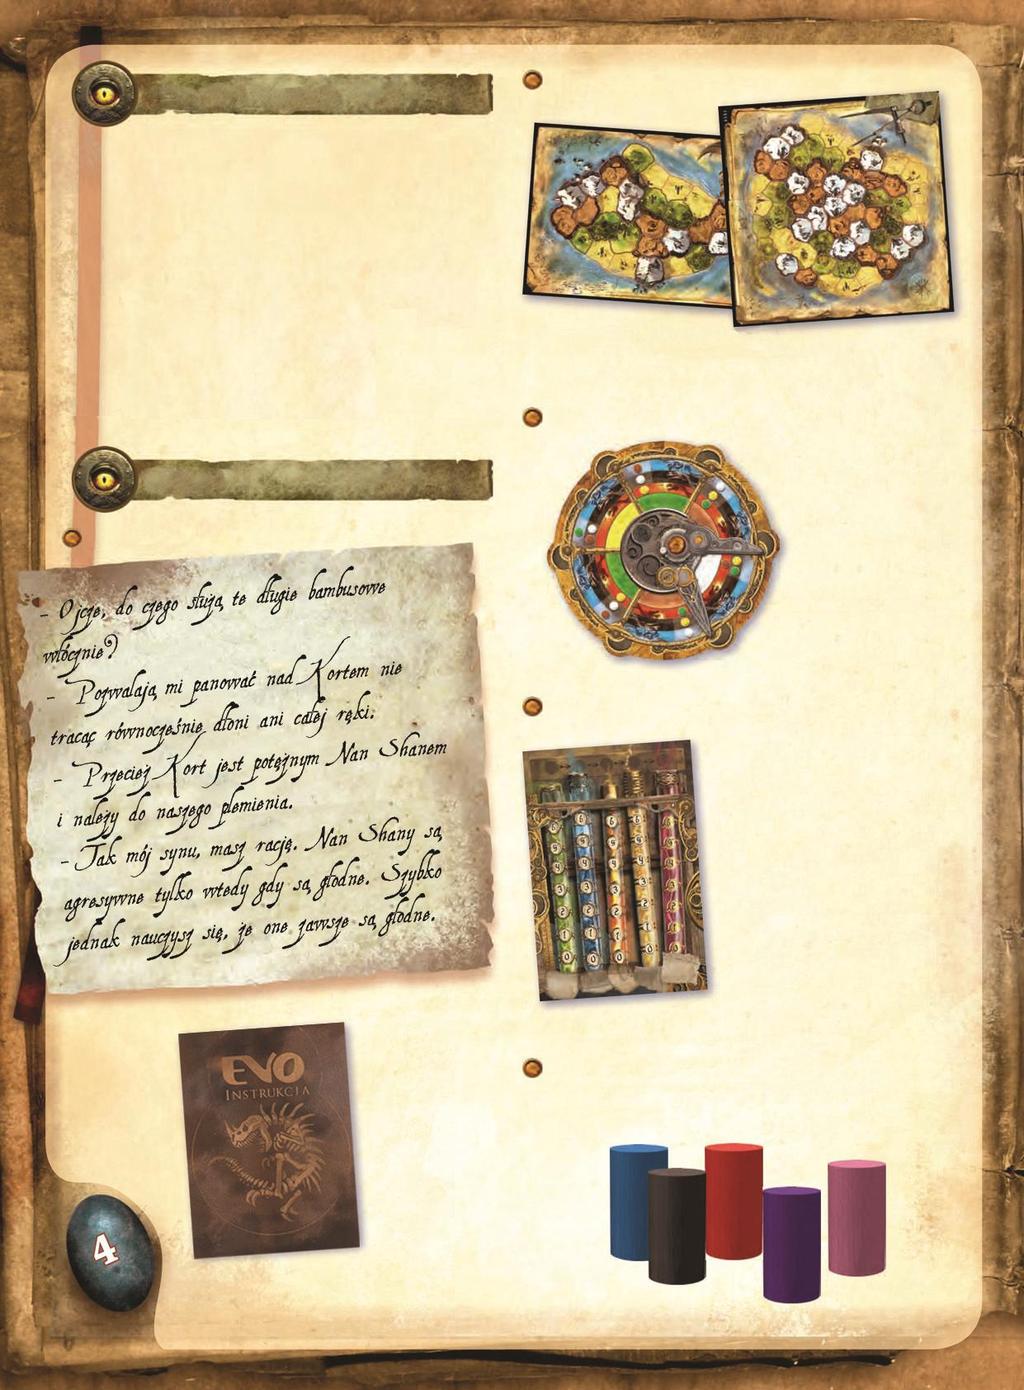 - Ojcze, do czego służą te długie bambusowe
włócznie?
- Pozwalają mi panować nad Kortem nie
tracąc równocześnie dłoni ani całej ręki.
- Przecież Kort jest potężnym Nan Shanem
i należy do naszego plemienia.
- Tak mój synu, masz rację. Nan Shany są
agresywne tylko wtedy gdy są głodne. Szybko
jednak nauczysz się, że one zawsze są głodne.
EVO
INSTRUKCJA
4